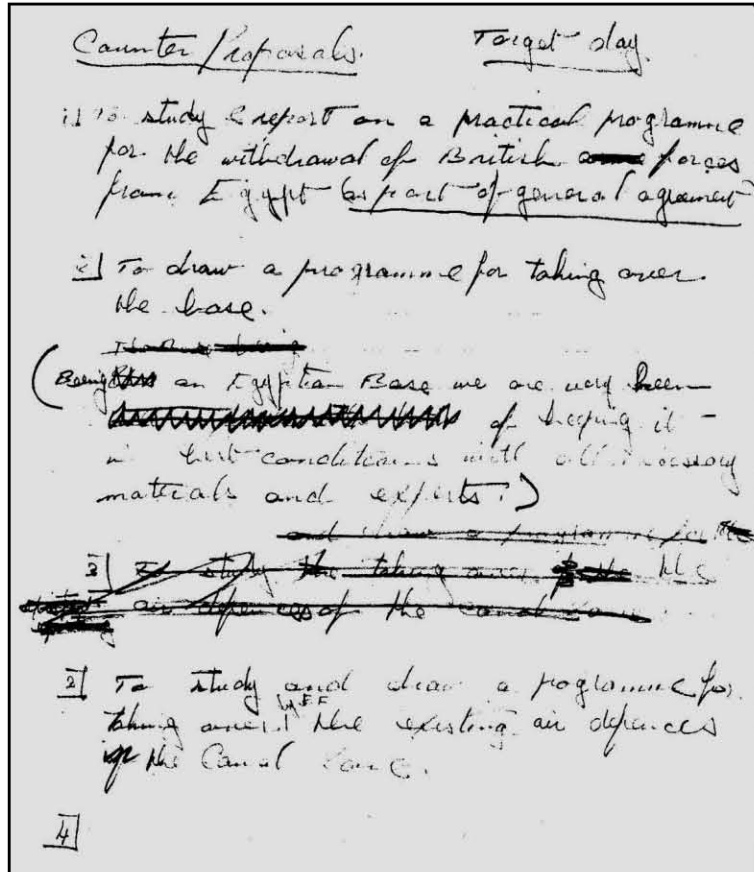 Counter Proposals. Target day.
1] To study & report on a practical programme
for the withdrawal of British forces
from Egypt as part of general agreement
2] To draw a programme for taking over
the base.
(Being an Egyptian Base we are very keen
of keeping it -
in best conditions with all necessary
materials and experts.)
and draw a programme for the
3] study the taking over the
air defences of the canal zone
3] To study and draw a programme for
taking over by E.F. the existing air defences
of the Canal Zone.
4]